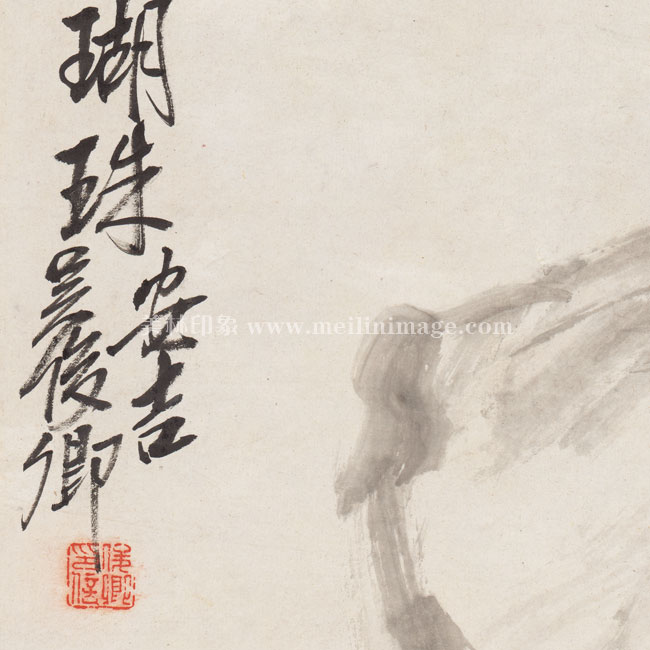 瑚珠
安吉
吴俊卿
美林印象 www.meilinimage.com
俊卿
印信